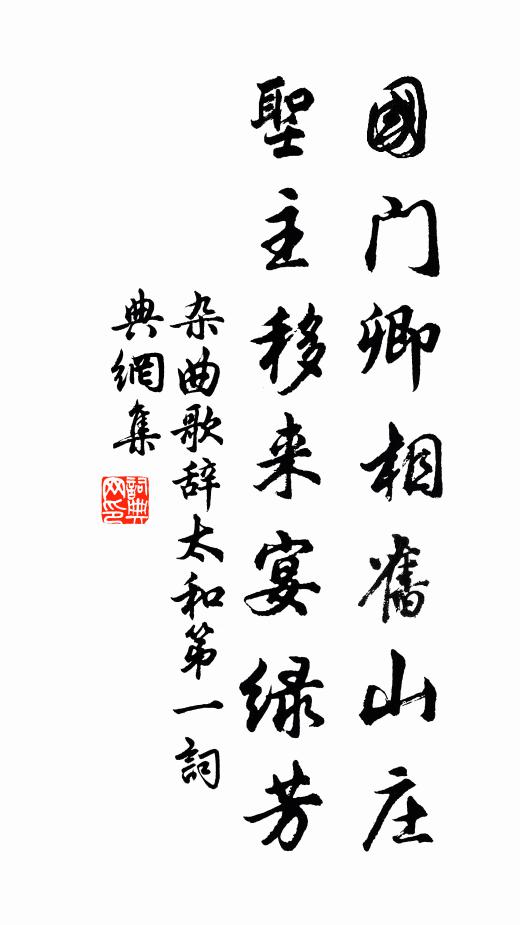 國门卿相舊山庄
聖主移来宴绿芳
杂曲歌辞太和第一詞
典網集
詞典网印